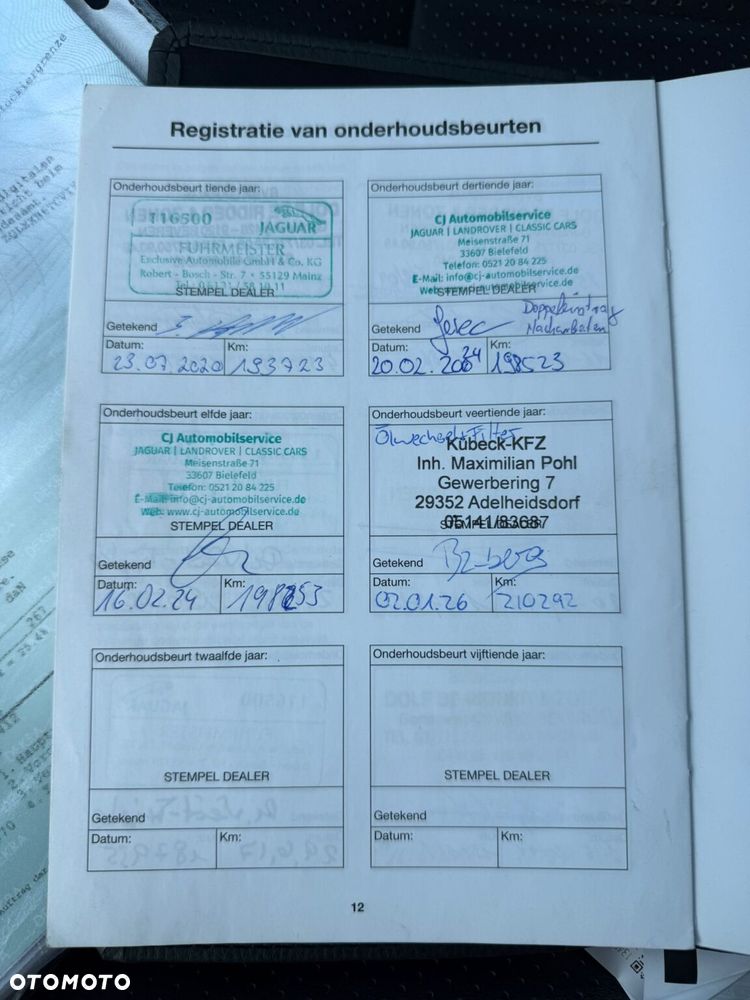 Registratie van onderhoudsbeurten
Onderhoudsbeurt tiende jaar:
116500
JAGUAR
FUHRMEISTER
Exclusive Automobile GmbH & Co. KG
Robert - Bosch - Str. 7 • 55129 Mainz
Tel.: 06131 / 58 10 11
STEMPEL DEALER
Getekend
Datum:
Km:
23.07.2020
193723
Onderhoudsbeurt dertiende jaar:
CJ Automobilservice
JAGUAR | LANDROVER | CLASSIC CARS
Meisenstraße 71
33607 Bielefeld
Telefon: 0521 20 84 225
E-Mail: info@cj-automobilservice.de
Web: www.cj-automobilservice.de
STEMPEL DEALER
Getekend
Doppeleintrag
Datum:
Km:
20.02.
24
198523
Onderhoudsbeurt elfde jaar:
CJ Automobilservice
JAGUAR | LANDROVER | CLASSIC CARS
Meisenstraße 71
33607 Bielefeld
Telefon: 0521 20 84 225
E-Mail: info@cj-automobilservice.de
Web: www.cj-automobilservice.de
STEMPEL DEALER
Getekend
Datum:
Km:
16.02.24
Onderhoudsbeurt veertiende jaar:
Ölwechsel + Filter
Kübeck-KFZ
Inh. Maximilian Pohl
Gewerbering 7
29352 Adelheidsdorf
05141/83687
STEMPEL DEALER
Getekend
Datum:
Km:
02.01.26
210292
Onderhoudsbeurt twaalfde jaar:
STEMPEL DEALER
Getekend
Datum:
Km:
Onderhoudsbeurt vijftiende jaar:
STEMPEL DEALER
Getekend
Datum:
Km:
12
OTOMOTO